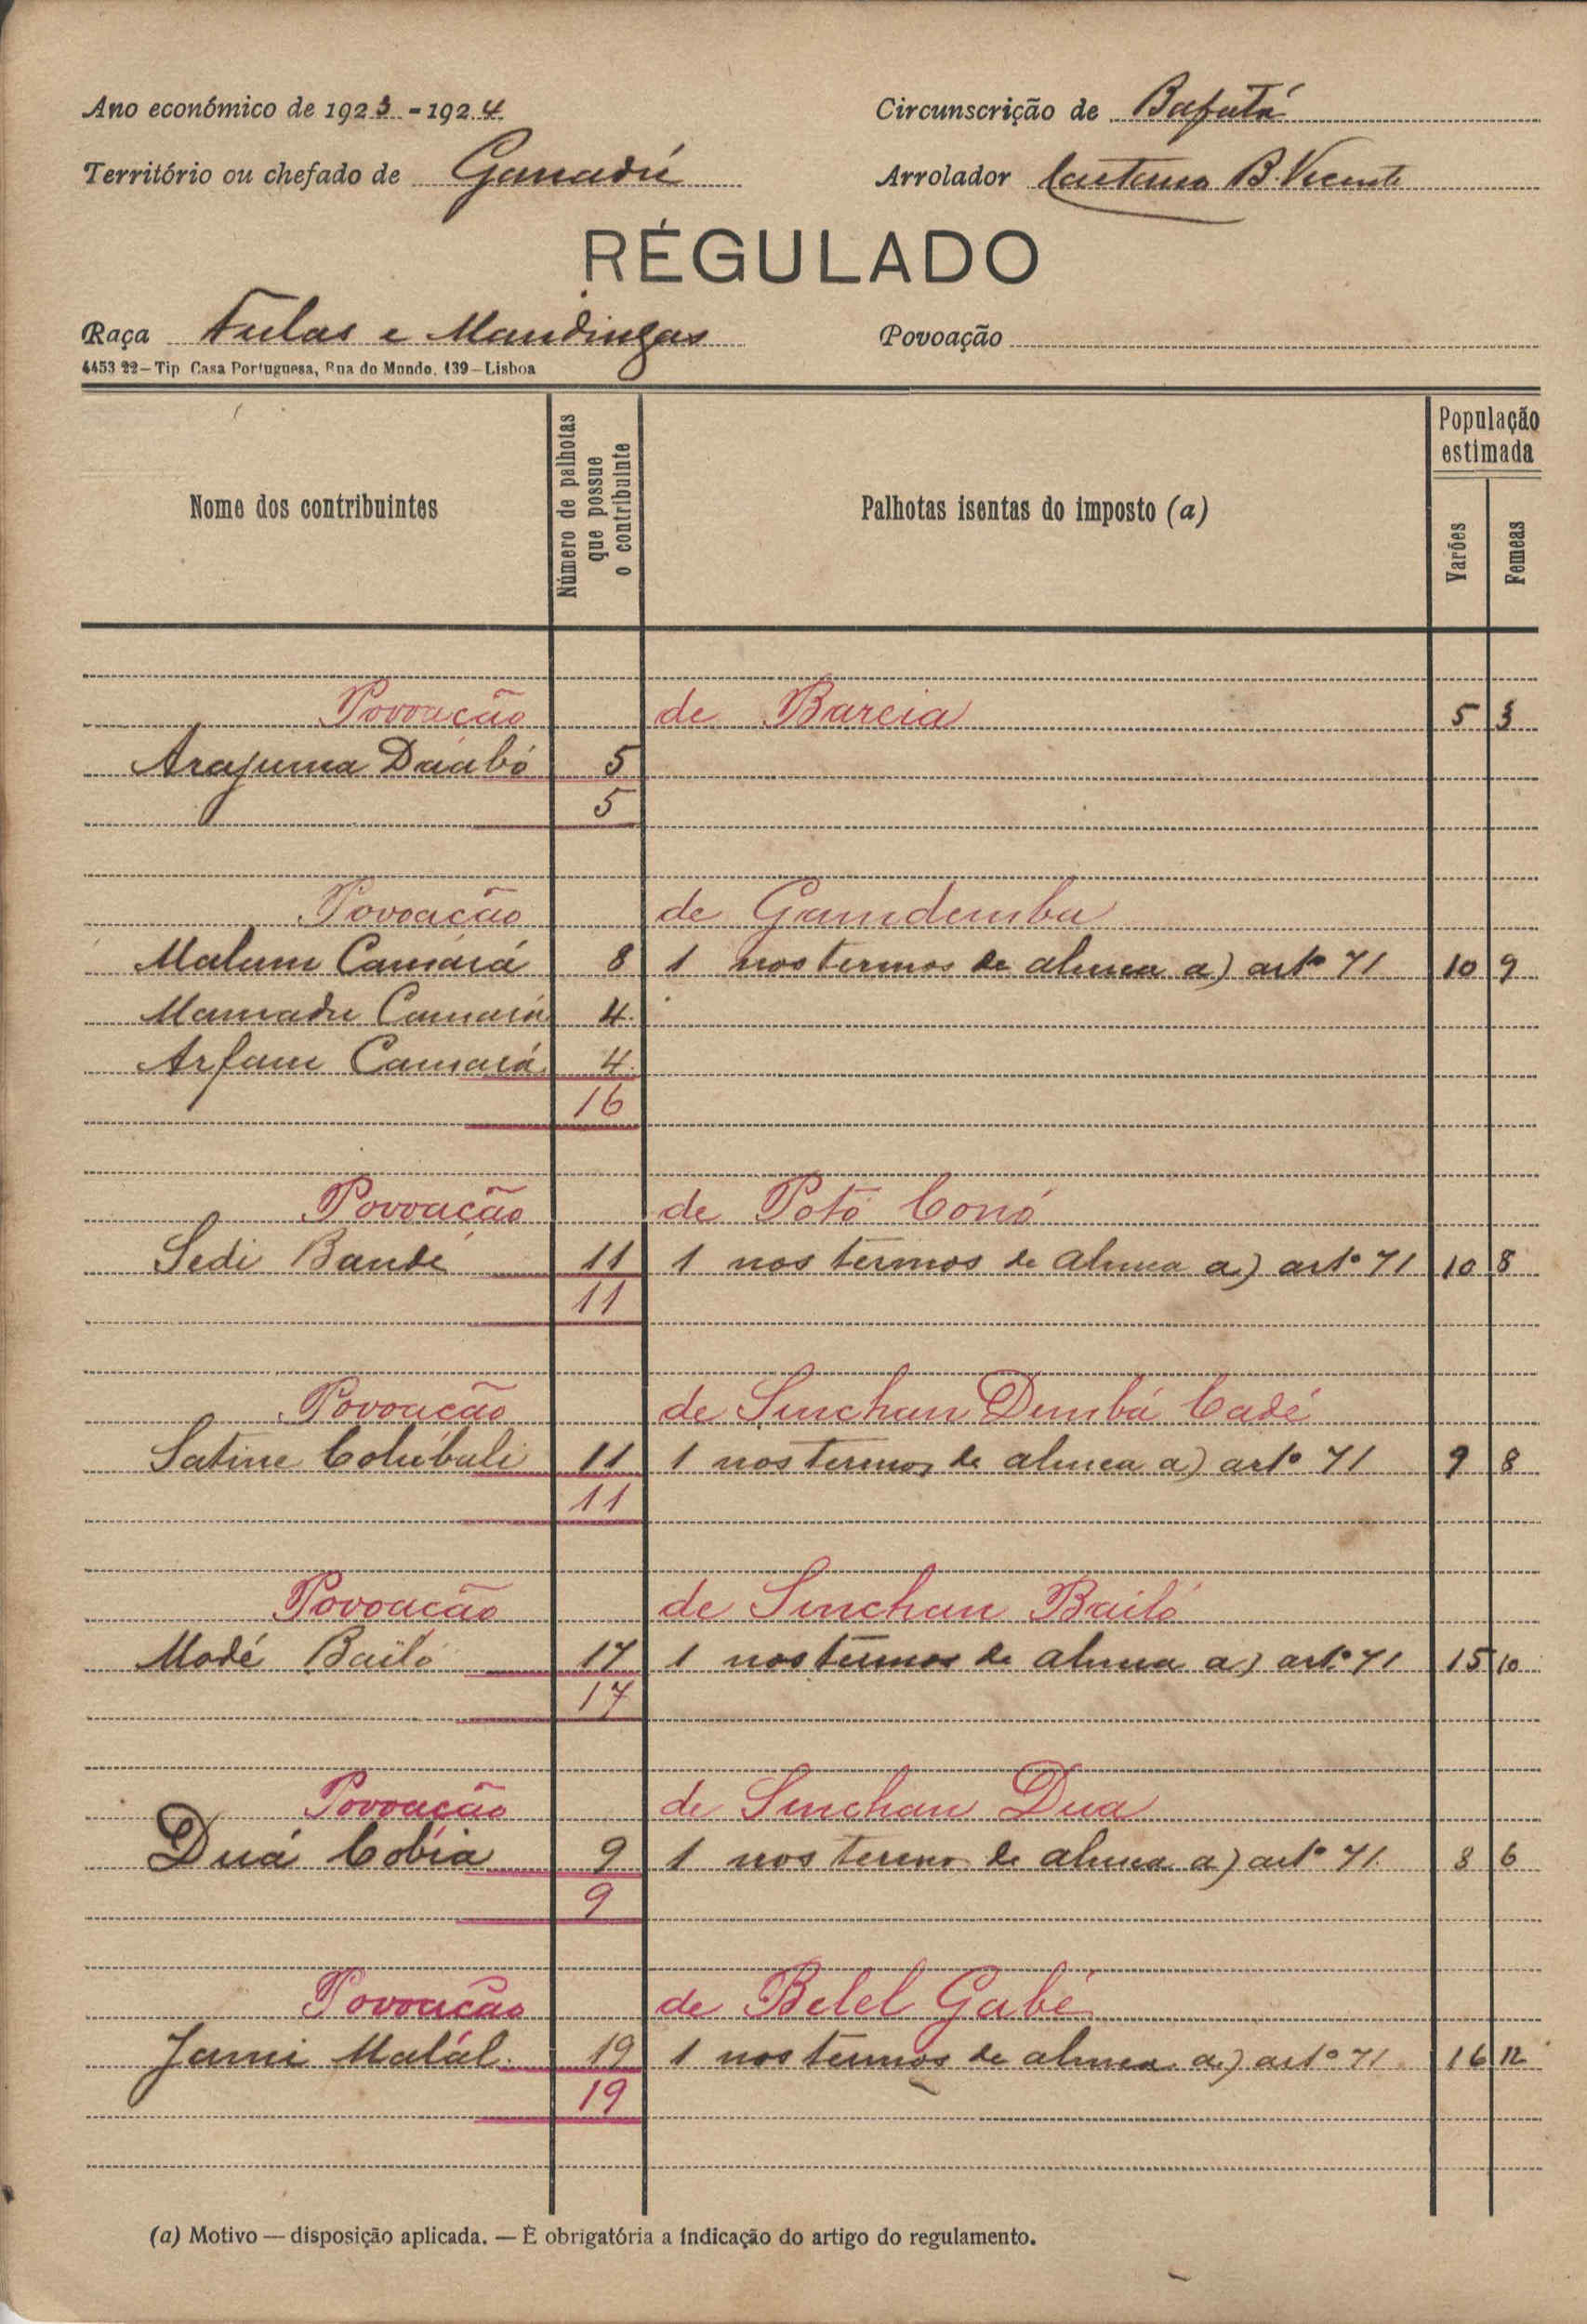 Ano económico de 1923-1924 Circunscrição de Bafatá
Território ou chefado de Ganadú Arrolador Caetano B. Vicente
RÉGULADO
Raça Fulas e Mandingas Povoação
4453 22—Tip Casa Portuguesa, Rua do Mundo, 139—Lisboa
Nome dos contribuintes Número de palhotas que possue o contribuinte Palhotas isentas do imposto (a) População estimada Varões Femeas
Povoação de Bareia 5 3
Arajuma Daábó 5
5
Povoação de Gamdemba
Malam Camárá 8 1 nos termos de alinea a) artº 71 10 9
Mamadu Camará 4
Arfam Camará 4
16
Povoação de Potó Conó
Sedi Bandé 11 1 nos termos de alinea a) artº 71 10 8
11
Povoação de Sinchan Dembá Cadé
Satine Colubali 11 1 nos termos de alinea a) artº 71 9 8
11
Povoação de Sinchan Bailó
Modé Bailó 17 1 nos termos de alinea a) artº 71 15 10
17
Povoação de Sinchan Dua
Duá Cobia 9 1 nos termo de alinea a) artº 71. 8 6
9
Povoação de Belel Gabé
Jami Malál. 19 1 nos termos de alinea a) artº 71 16 12
19
(a) Motivo — disposição aplicada. — É obrigatória a indicação do artigo do regulamento.